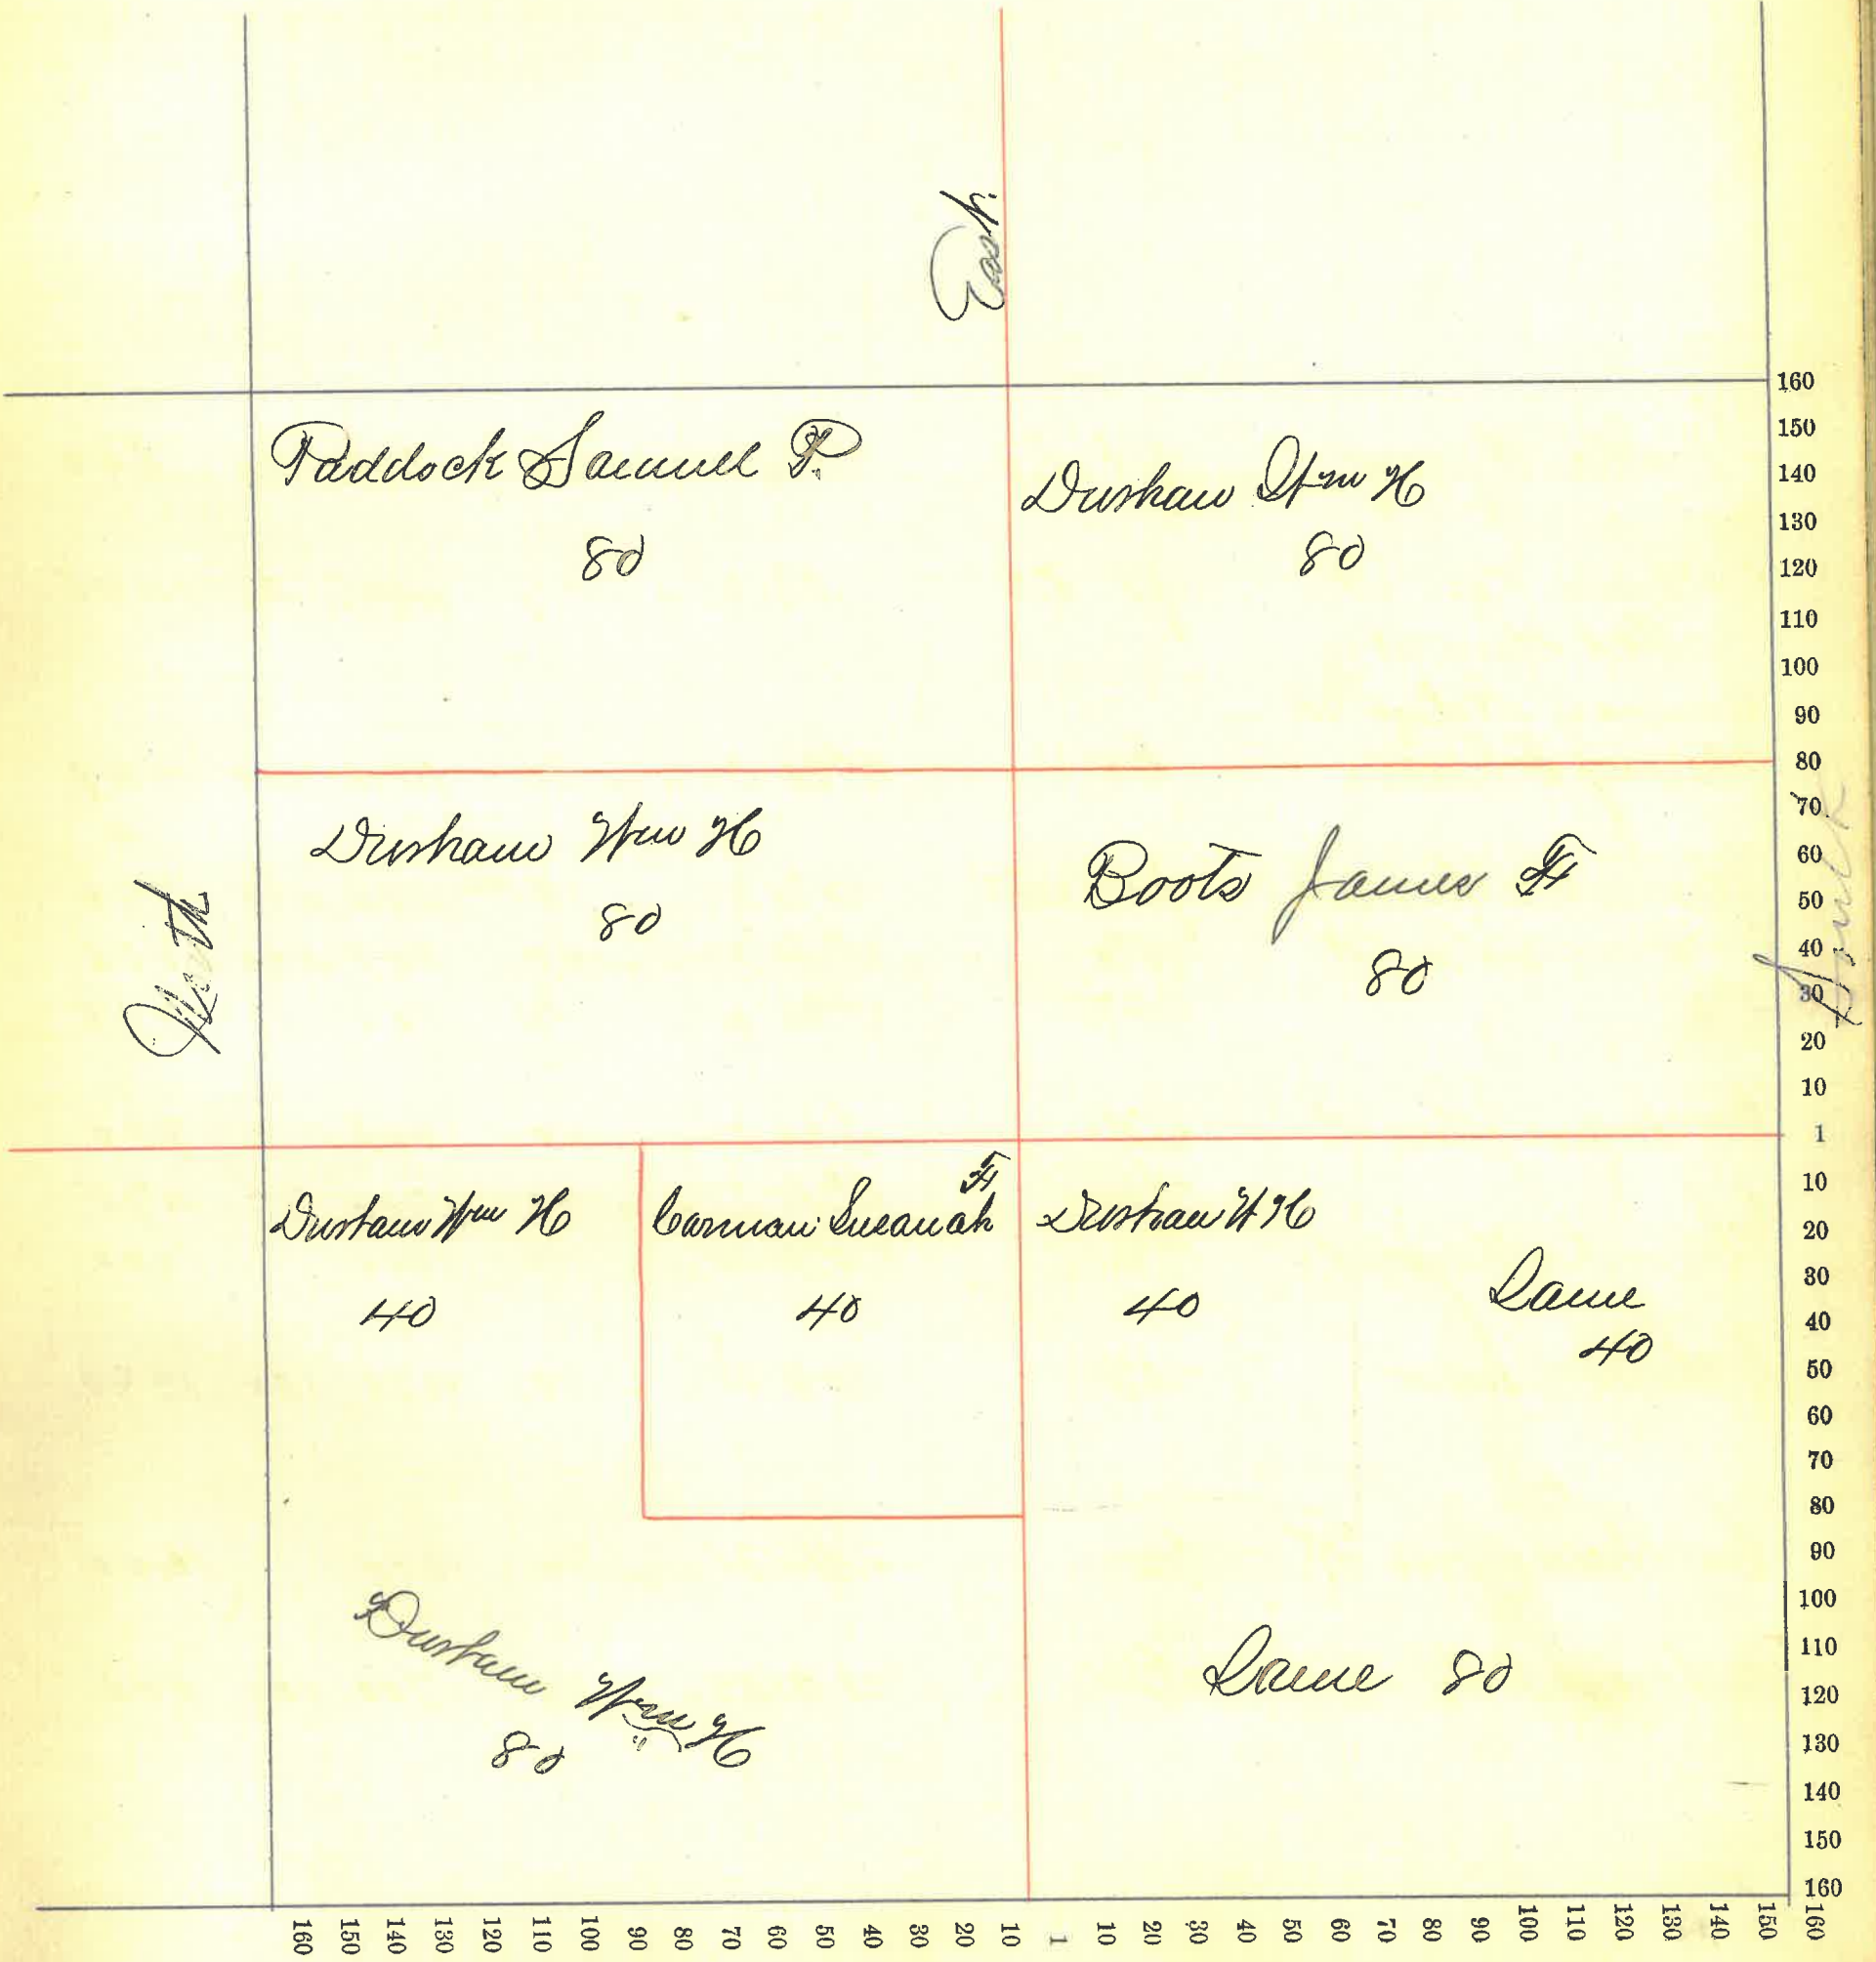 East
Paddock Samuel P.
80
Durham Wm H
80
Durham Wm H
80
Boots James F
80
North
South
Durham Wm H
40
Carman Susanah F
40
Durham W H
40
Same
40
Durham Wm H
80
Same 80
160
150
140
130
120
110
100
90
80
70
60
50
40
30
20
10
1
10
20
30
40
50
60
70
80
90
100
110
120
130
140
150
160
160 150 140 130 120 110 100 90 80 70 60 50 40 30 20 10 1 10 20 30 40 50 60 70 80 90 100 110 120 130 140 150 160